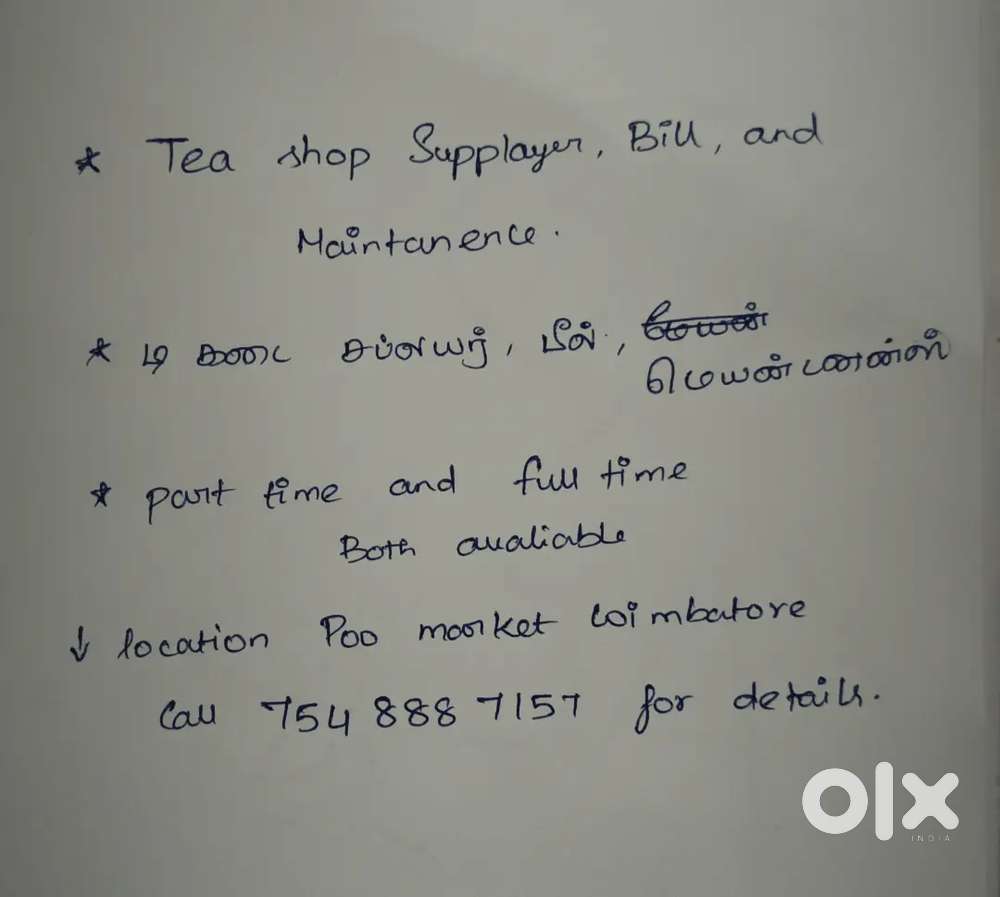 * Tea shop Supplayer, Bill, and
Maintanence.
* டி கடை சப்லயர், பீல்,
மெயண்டனன்ஸ்
* part time and full time
Both avaliable
↓ location Poo market Coimbatore
Call 754 888 7157 for details.
olx
INDIA